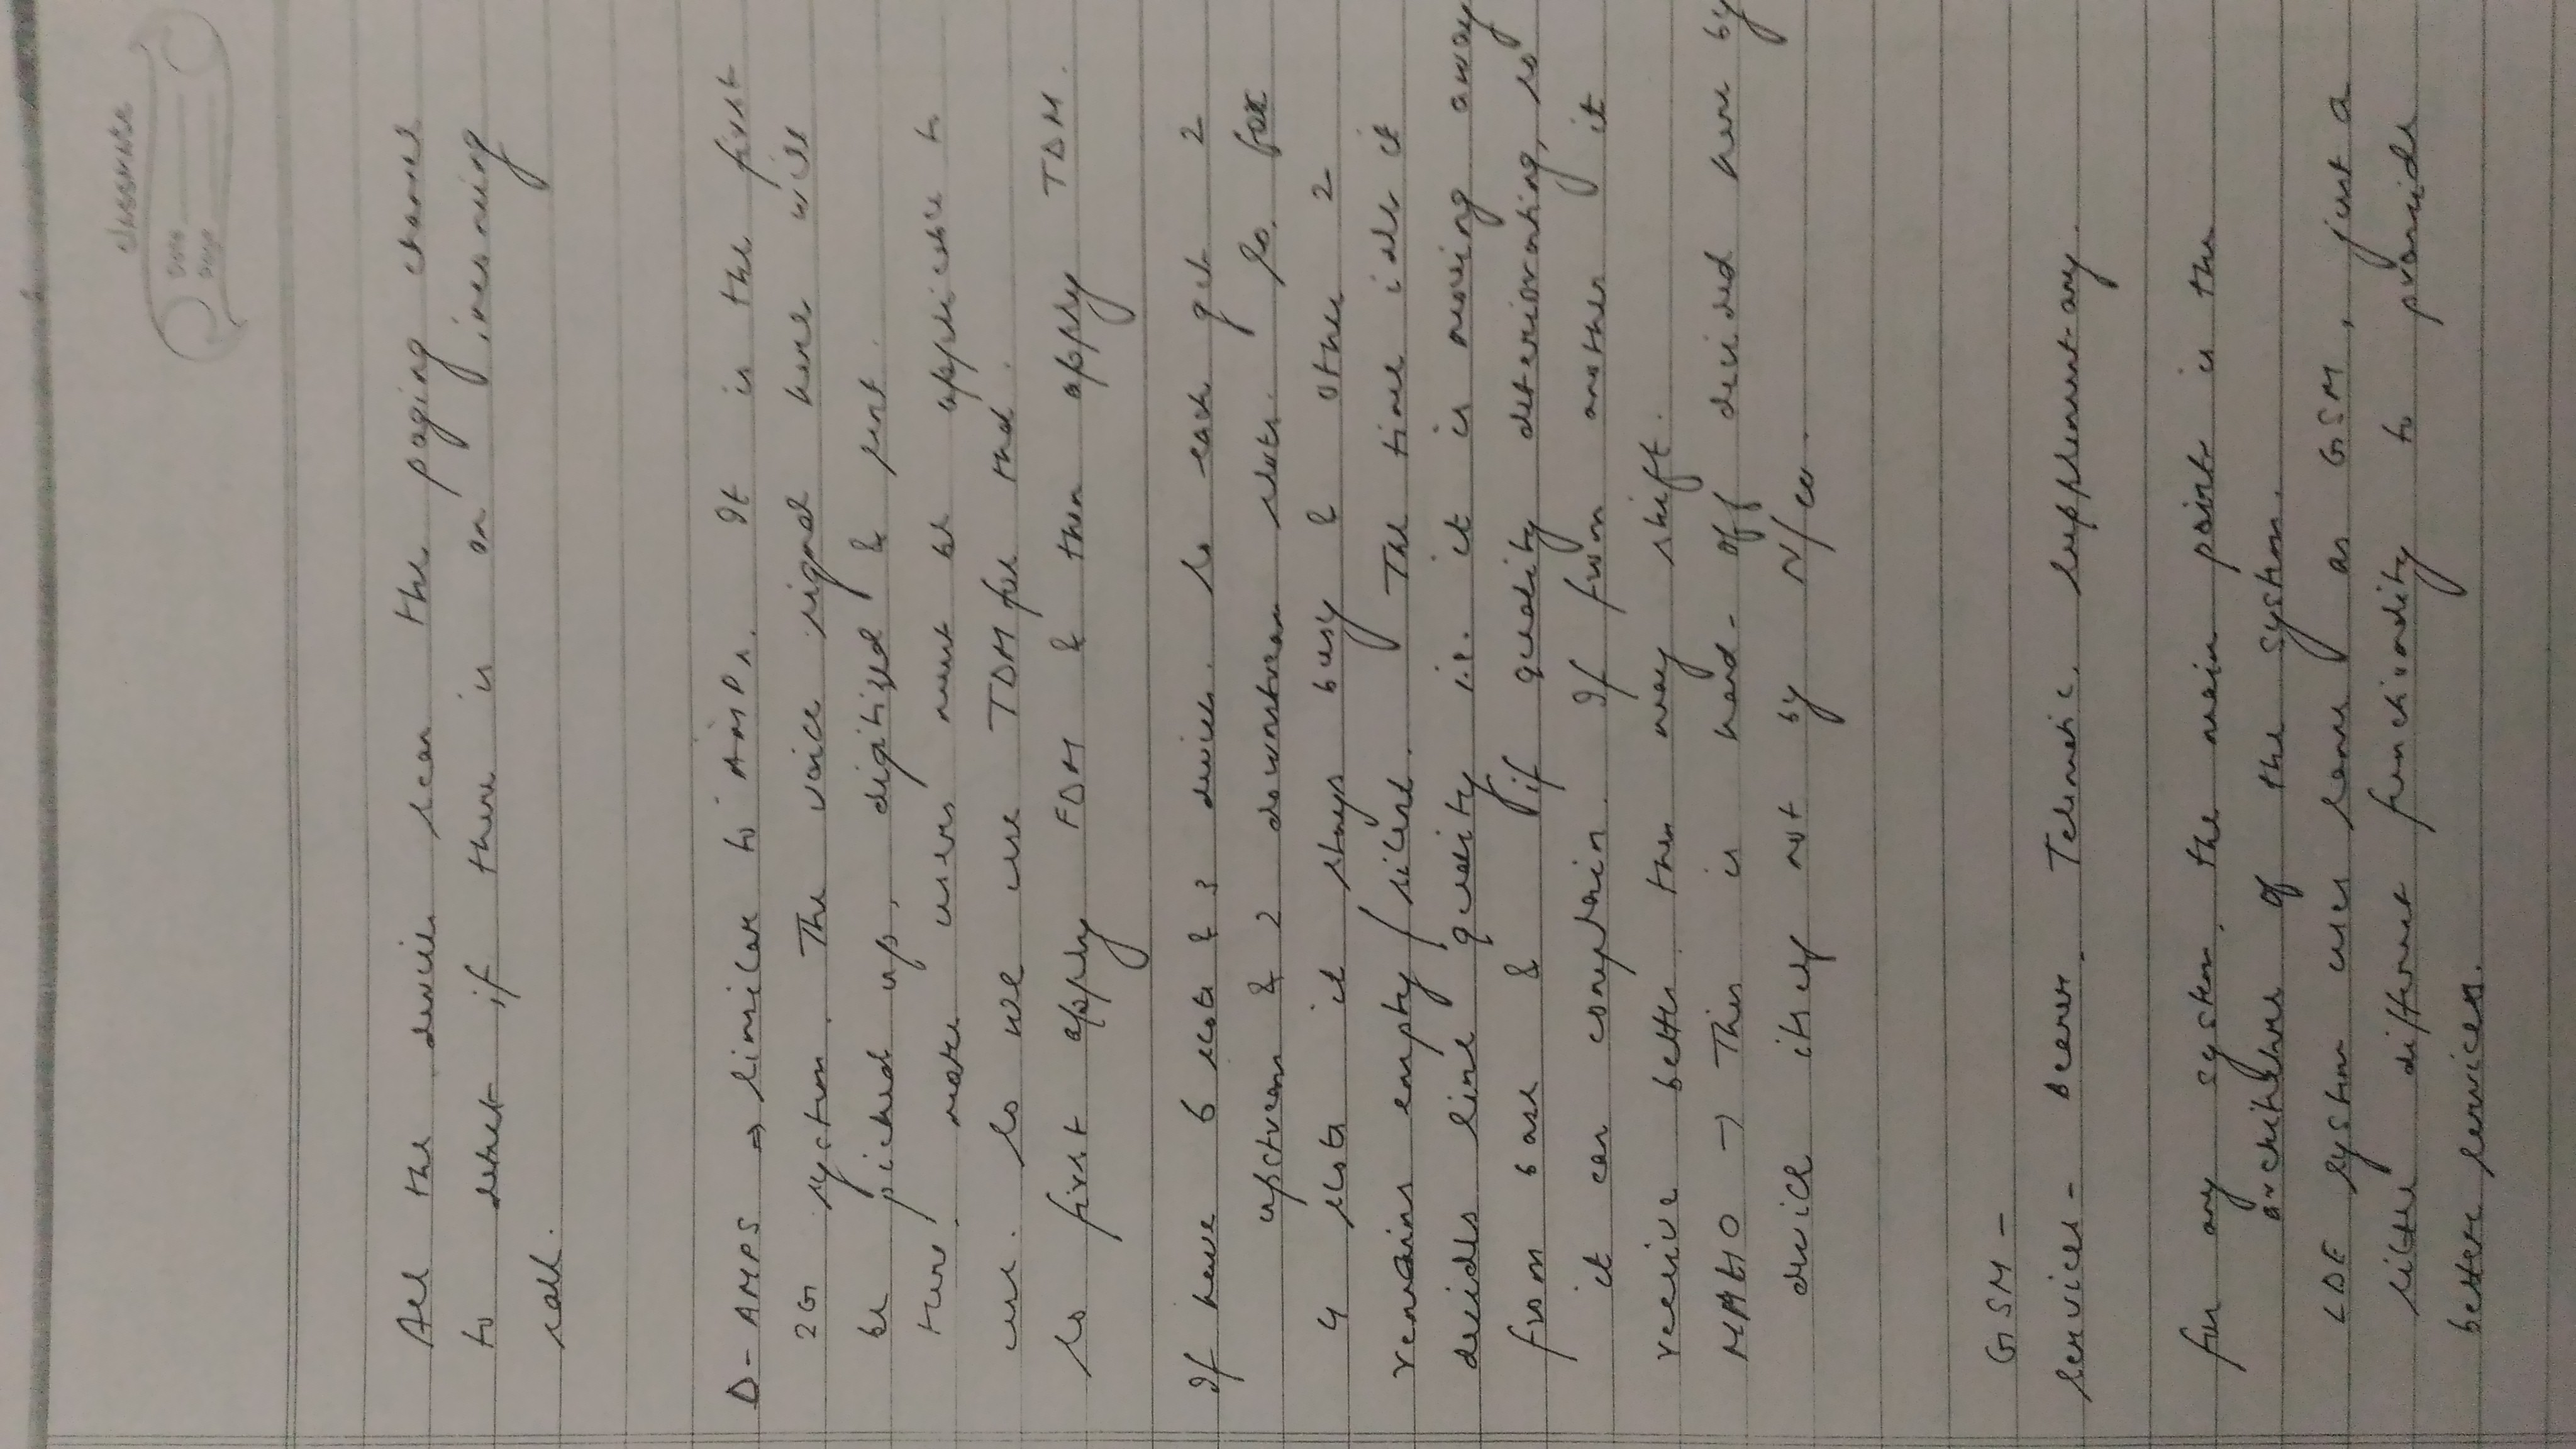 classmate
Date
Page
All the devices scan the paging channel
to detect if there is an incoming
call.
D-AMPS ⇒ Similar to AMPs. It is the first
2G system. The voice signal here will
be picked up, digitized & sent.
Here more users must be applicable to
use. So we use TDM for that.
So first apply FDM & then apply TDM.
If have 6 slots & 3 devices. So each get 2
upstream & 2 downstream slots. So for
4 slots it stays busy & other 2
remains empty/silent. The time idle it
decides line quality i.e. it is moving away
from base & if quality deteriorating, so
it can complain. If from another it
receive better then may shift.
MAHO → This is hand-off decided here by
device itself not by N/w.
GSM -
Services - Bearer, Telematic, Supplementary.
for any system, the main point is the
architecture of the system.
LDE system uses same as GSM, just a
little different functionality to provide
better services.